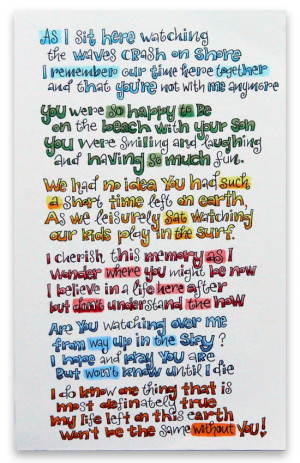 As I sit here watching
the waves crash on shore
I remember our time here together
and that you're not with me anymore
You were so happy to be
on the beach with your son
You were smiling and laughing
and having so much fun.
We had no idea you had such
a short time left on earth,
As we leisurely sat watching
our kids play in the surf.
I cherish this memory as I
wonder where you might be now
I believe in a life here after
but don't understand the how
Are you watching over me
from way up in the sky?
I hope and pray you are
But won't know until I die
I do know one thing that is
most definately true
my life left on this earth
won't be the same without you!